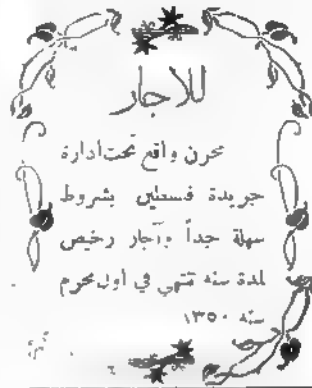 للاجار
مخزن واقع تحت ادارة
جريدة فلسطين بشروط
سهلة جداً وآجار رخيص
لمدة سنه تنتهي في أول محرم
سنه ١٣٥٠